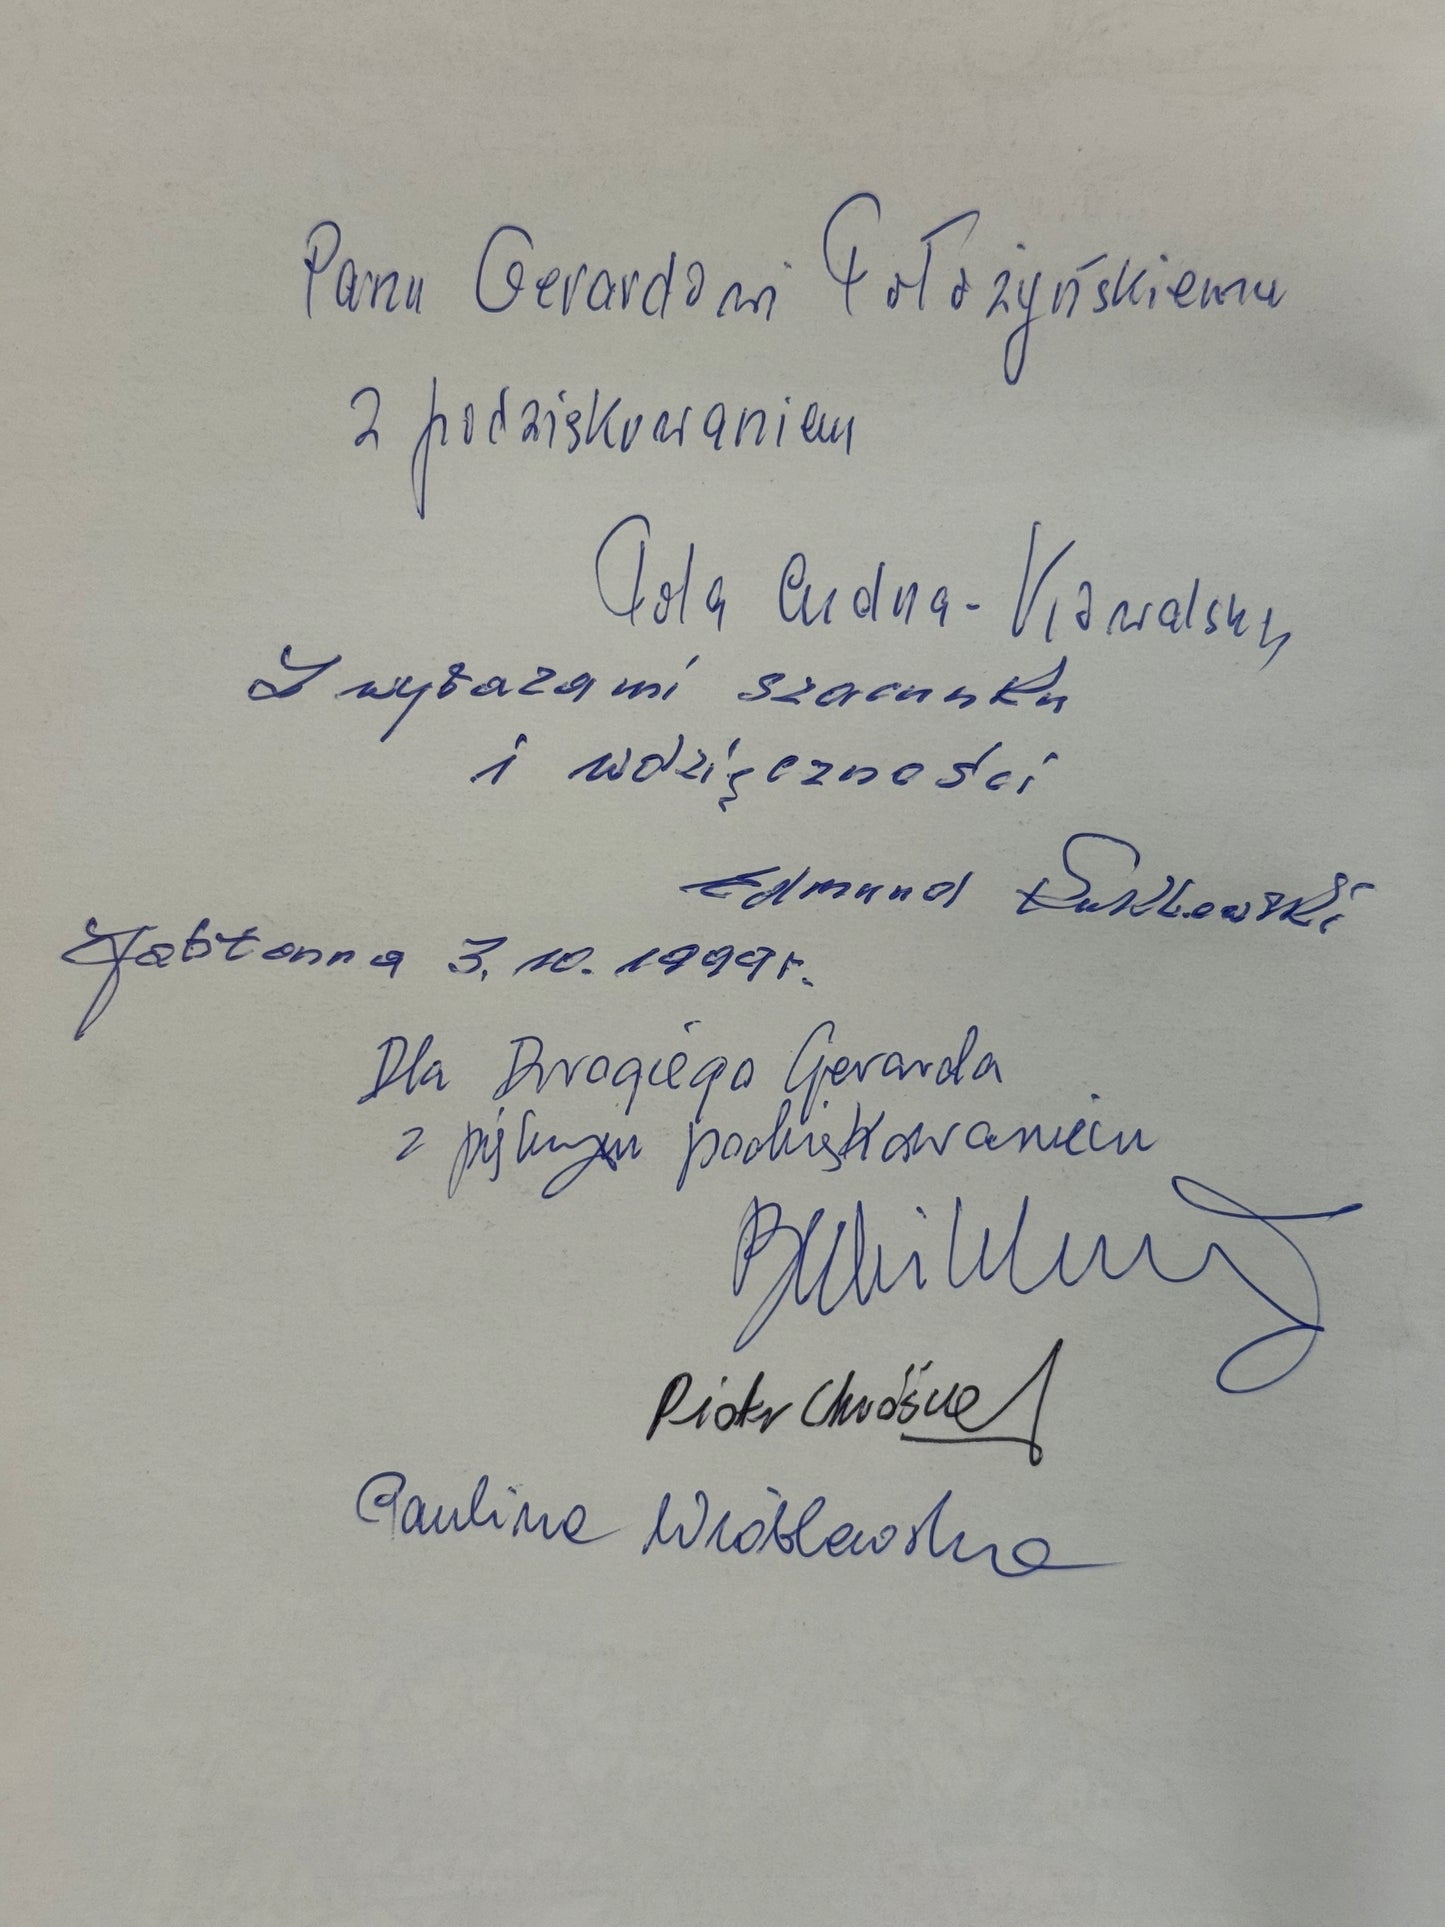 Panu Gerardowi Położyńskiemu
z podziękowaniem
Pola Cudna-Kowalska
Z wyrazami szacunku
i wdzięczności
Edmund
Jabłonna 3.10.1999r.
Dla Drogiego Gerarda
z pięknym podziękowaniem
Piotr
Paulina Wróblewska